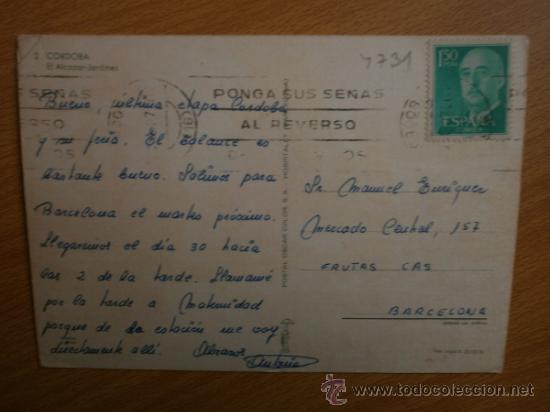 2. CORDOBA
El Alcazar-Jardines
7731
1'50
ESPAÑA
SEÑAS
PONGA SUS SEÑAS
AL REVERSO
Bueno, última etapa Cordoba
y fria. El balance es
bastante bueno. Salimos para
Barcelona el martes próximo.
Llegaremos el dia 30 hacia
las 2 de la tarde. Llamamé
por la tarde a Maternidad
porque de la estación me voy
directamente alli. Abrazos
Antonio
POSTAL OSCAR COLOR, S.A. HOSPITALET
Sr. Manuel Enriquez
Mercado Central, 157
FRUTAS CAS
BARCELONA
todocoleccion.net